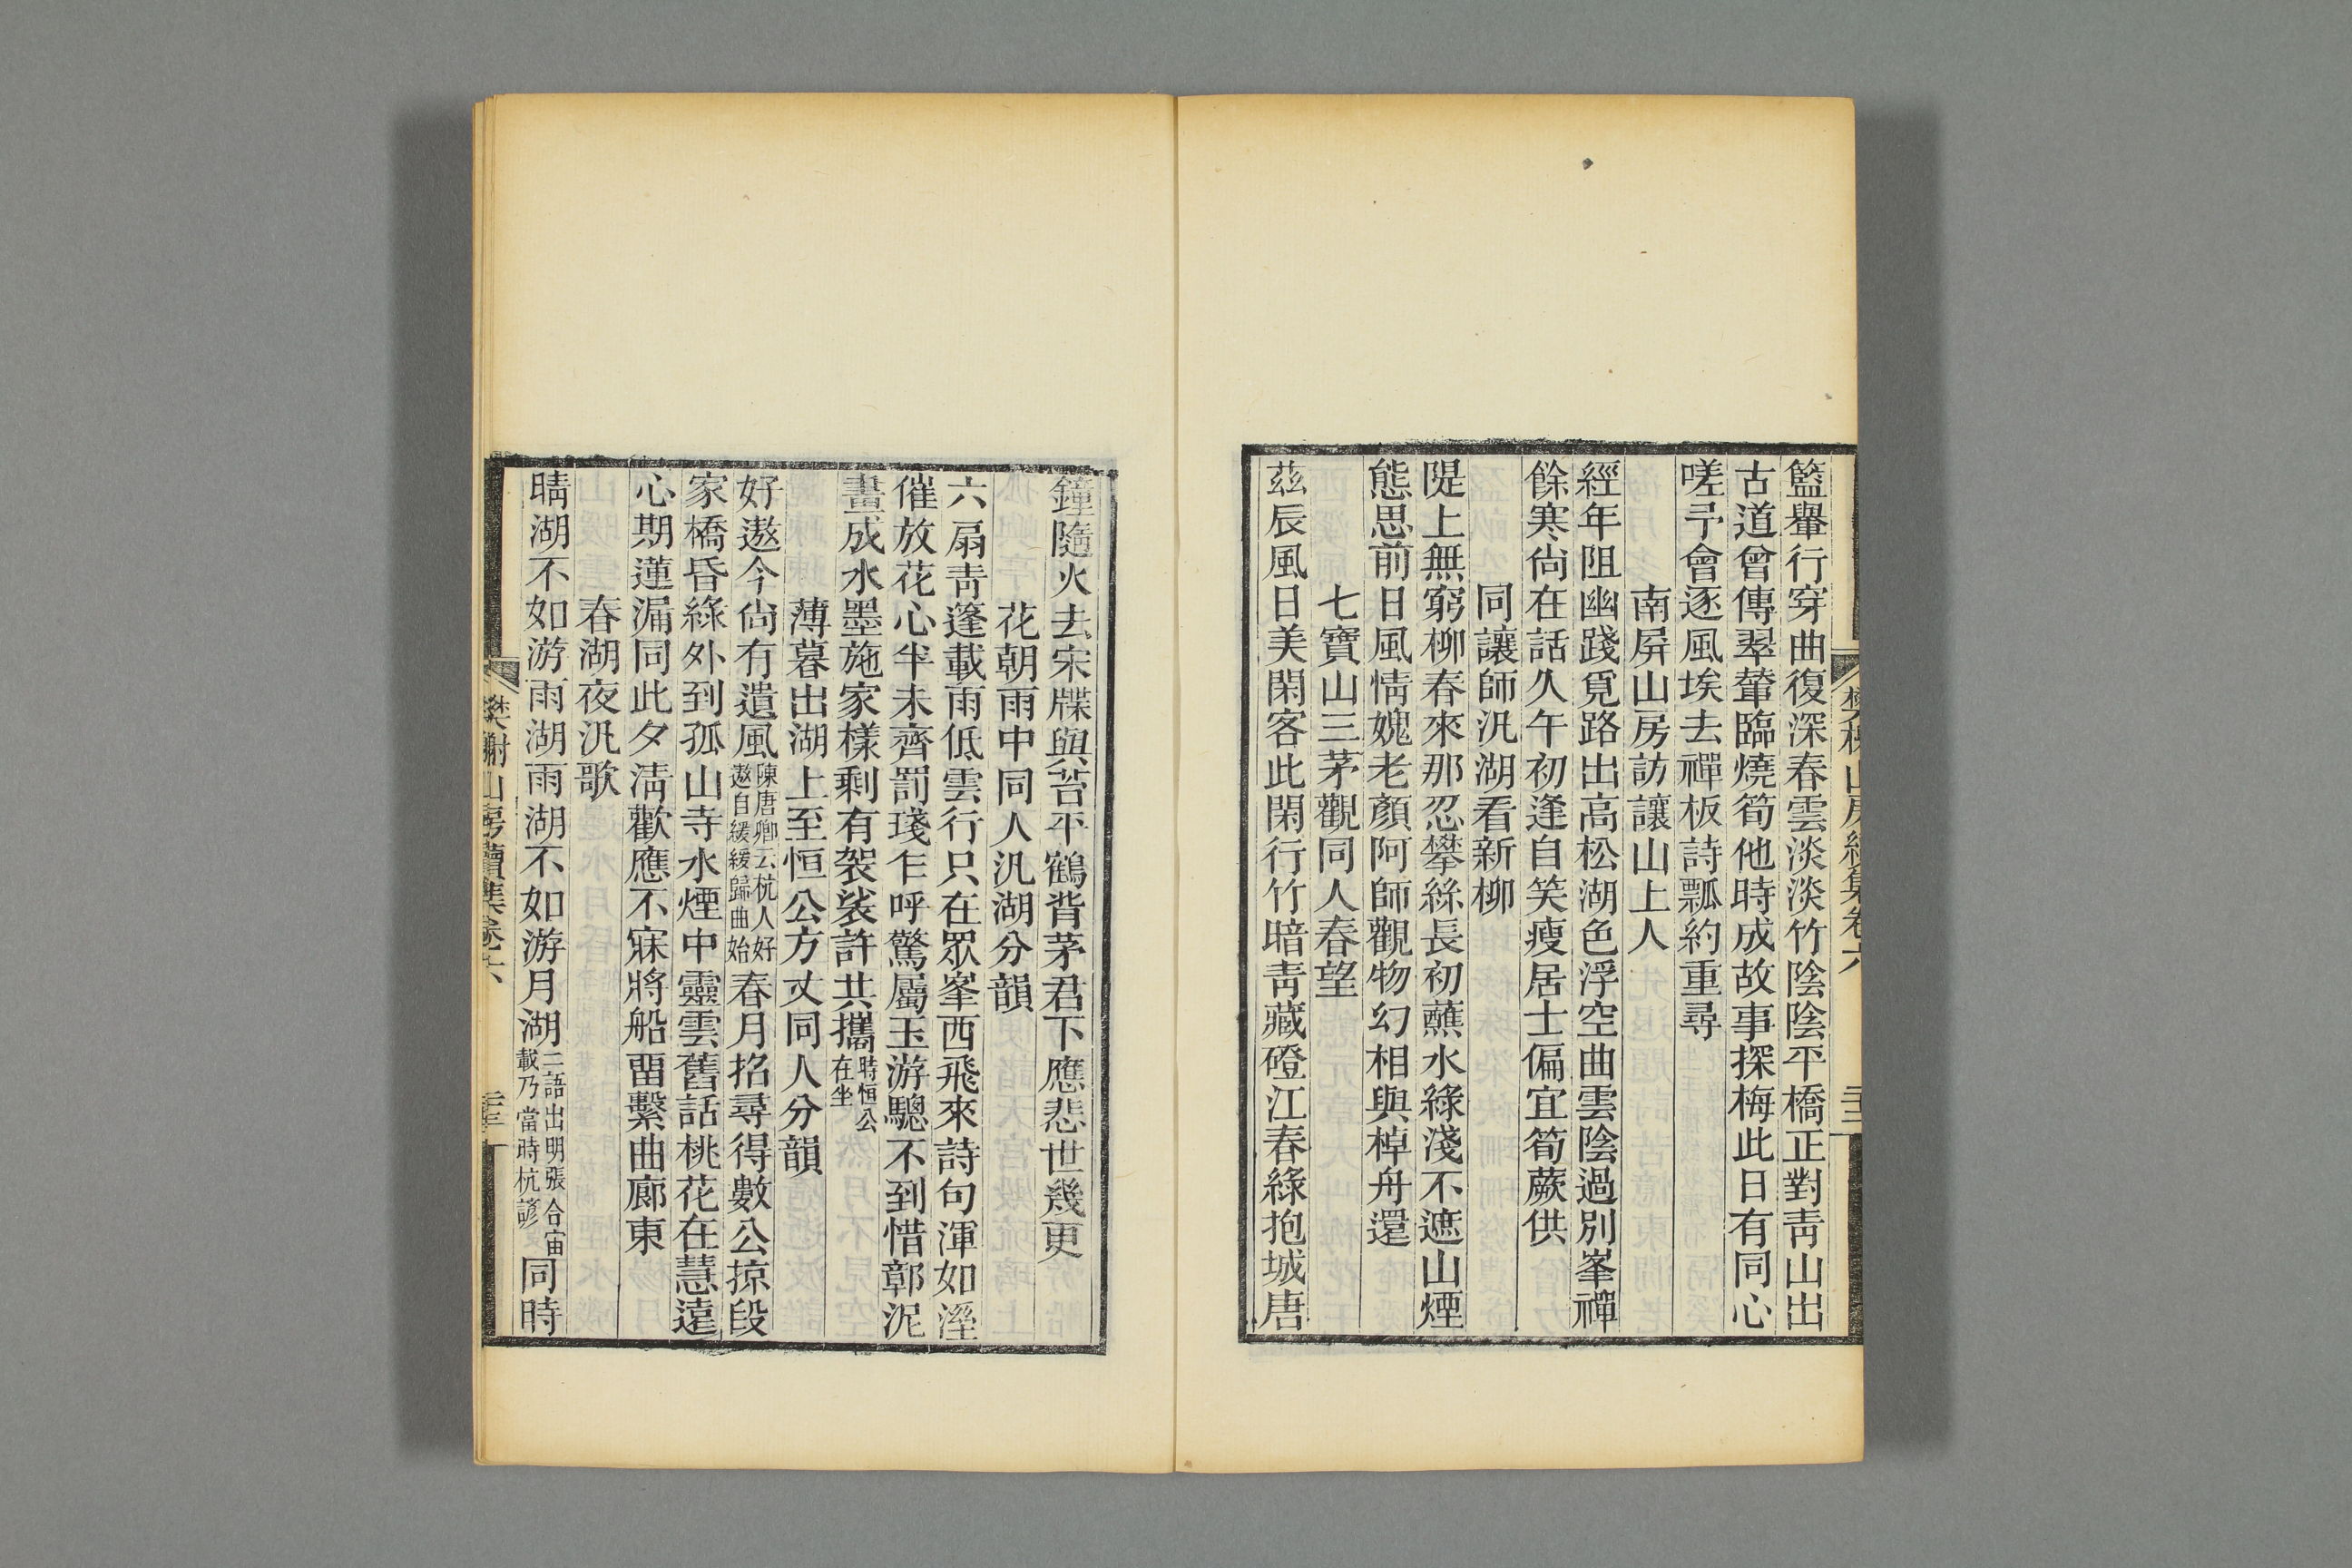 籃轝行穿曲復深春雲淡淡竹陰陰平橋正對青山出
古道曾傳翠輦臨燒筍他時成故事探梅此日有同心
嗟予會逐風埃去禪板詩瓢約重尋
南屏山房訪讓山上人
經年阻幽踐覓路出高松湖色浮空曲雲陰過別峯禪
餘寒尙在話久午初逢自笑瘦居士偏宜筍蕨供
同讓師汎湖看新柳
隄上無窮柳春來那忍攀絲長初蘸水綠淺不遮山煙
態思前日風情媿老顏阿師觀物幻相與棹舟還
七寶山三茅觀同人春望
茲辰風日美閑客此閑行竹暗青藏磴江春綠抱城唐
鐘隨火去宋牒與苔平鶴背茅君下應悲世幾更
花朝雨中同人汎湖分韻
六扇青篷載雨低雲行只在眾峯西飛來詩句渾如溼
催放花心半未齊罰琖乍呼驚屬玉游驄不到惜鄣泥
畫成水墨施家樣剩有袈裟許共攜時恒公在坐
薄暮出湖上至恒公方丈同人分韻
好遨今尙有遺風陳唐卿云杭人好遨自緩緩歸曲始春月招尋得數公掠段
家橋昏綠外到孤山寺水煙中靈雲舊話桃花在慧遠
心期蓮漏同此夕淸歡應不寐將船畱繫曲廊東
春湖夜汎歌
晴湖不如游雨湖雨湖不如游月湖二語出明張合宙載乃當時杭諺同時
樊榭山房續集卷六